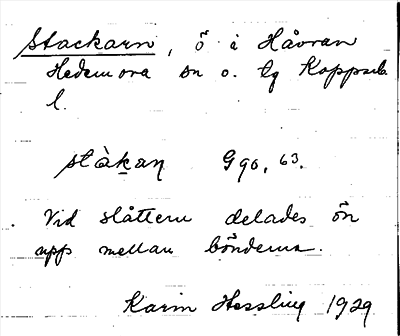 Stackarn, ö i Håvran
Hedemora sn o. tg Kopparb
l.
stàkan G 90, 63.
Vid slåttern delades ön
upp mellan bönderna.
Karin Hessling 1929